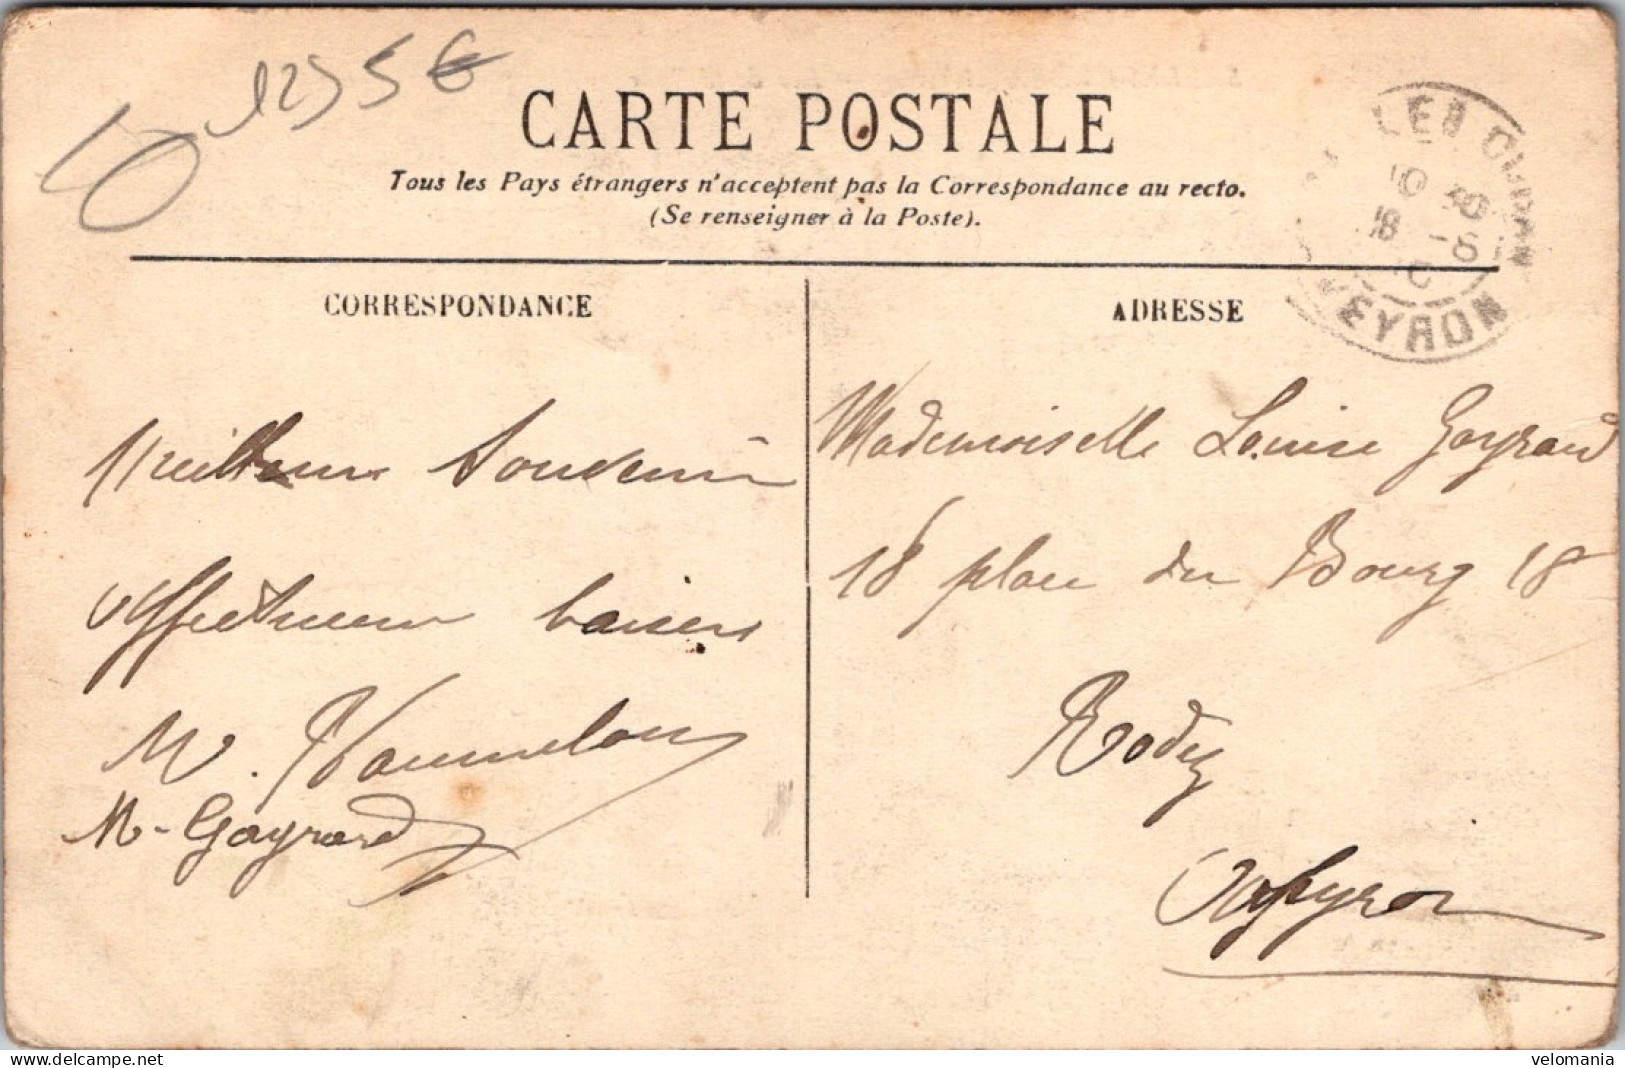 1255€
CARTE POSTALE
Tous les Pays étrangers n'acceptent pas la Correspondance au recto.
(Se renseigner à la Poste).
CORRESPONDANCE
Meilleurs Souvenir
Affectueux baisers
M.
M. Gayrard
ADRESSE
Mademoiselle Louise Gayrard
18 place du Bourg 18
Rodez
Aveyron
10 30
18 -8
VEYRON
velomania